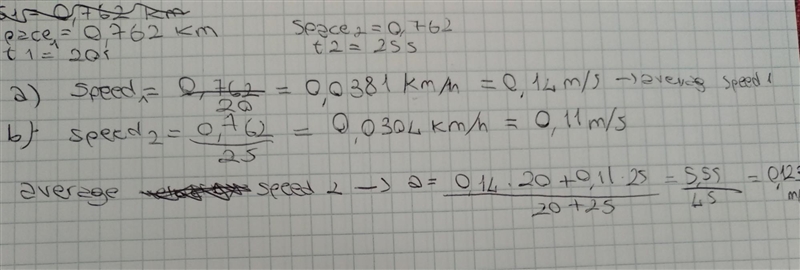 s = 0,762 km
pace₁ = 0,762 km space₂ = 0,762
t1 = 20s t2 = 25s
a) speed₁ = 0,762 / 20 = 0,0381 km/h = 0,14 m/s → averag speed 1
b) speed₂ = 0,762 / 25 = 0,0304 km/h = 0,11 m/s
average speed 2 → a = 0,14 · 20 + 0,11 · 25 / 20 + 25 = 5,55 / 45 = 0,123 m/